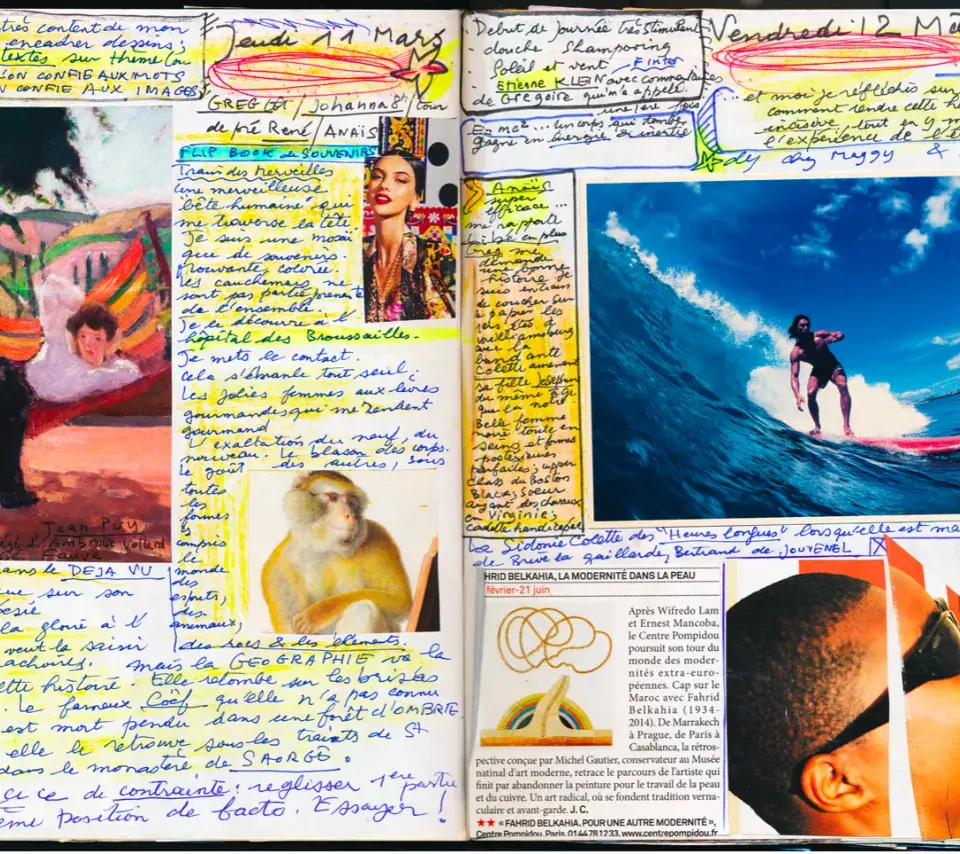 très content de mon
encadrer dessins;
textes sur thème ou
ON CONFIE AUX MOTS
N CONFIE AUX IMAGES
Jeudi 11 Mars
GREG Johanna 8h / tour
de pré René / ANAÏS
FLIP BOOK de SOUVENIRS
Train des merveilles
une merveilleuse
"bête humaine" qui
me traverse la tête
Je suis une mosaï
que de souvenirs.
colorée.
Les cauchemars ne
sont pas partie prenante
de l'ensemble.
Je le découvre à l'
hôpital des Broussailles.
Je mets le contact.
Cela s'ébranle tout seul.
Les jolies femmes aux lèvres
gourmandes qui me rendent
gourmand
L'exaltation du neuf, du
nouveau. Le blason des corps.
Le goût des autres, sous
toutes
les
formes
y
compris
le
monde
des
esprits,
des
animaux,
des rocs & des éléments.
Jean PUY
d'Ambroise Vollard
Fauve
dans le DEJA VU
que sur son
la gloire à l'
veut la saisir
mais la GEOGRAPHIE va la
cette histoire. Elle retombe sur les brisées
Le fameux qu'elle n'a pas connu
est mort pendu dans une forêt d'OMBRIE
elle le retrouve sous les traits de St
dans le monastère de SAORGE.
ce de contrainte: reglisser 1ère partie
ème position de facto. Essayer!
Debut de Journée très Stimulant
- douche Shampoing
- Soleil et vent
Etienne KLEIN avec commentaires
de Grégoire qui m'a appelé.
une 1ère fois
E = mc² ... un corps qui tombe
gagne en énergie & inertie
Vendredi 12 Ma
... et moi je réfléchis sur
comment rendre cette h
tout en y m
l'expérience de l'é
chez Maggy &
Anaïs
super
efficace...
me rapporte
en plus
Greg me
demande
une bonne
histoire
suis en train
de coucher sur
papier les
et
Williamsburg
avec la
Colette amenant
sa fille
du même âge
que la
Belle femme
noire toute en
seins et formes
parfaites; upper
class du Boston
Black; Soeur
ayant des chevaux
en Virginie;
cadette handicapée
La Sidonie Colette des "Heures longues" lorsqu'elle est ma
de Brive la gaillarde, Bertrand de JOUVENEL
HRID BELKAHIA, LA MODERNITÉ DANS LA PEAU
février-21 juin
Après Wifredo Lam
et Ernest Mancoba,
le Centre Pompidou
poursuit son tour du
monde des moder-
nités extra-euro-
péennes. Cap sur le
Maroc avec Fahrid
Belkahia (1934-
2014). De Marrakech
à Prague, de Paris à
Casablanca, la rétros-
pective conçue par Michel Gautier, conservateur au Musée
natinal d'art moderne, retrace le parcours de l'artiste qui
finit par abandonner la peinture pour le travail de la peau
et du cuivre. Un art radical, où se fondent tradition verna-
culaire et avant-garde. J. C.
★★ « FAHRID BELKAHIA. POUR UNE AUTRE MODERNITÉ »,
Centre Pompidou, Paris. 01 44 78 12 33. www.centrepompidou.fr